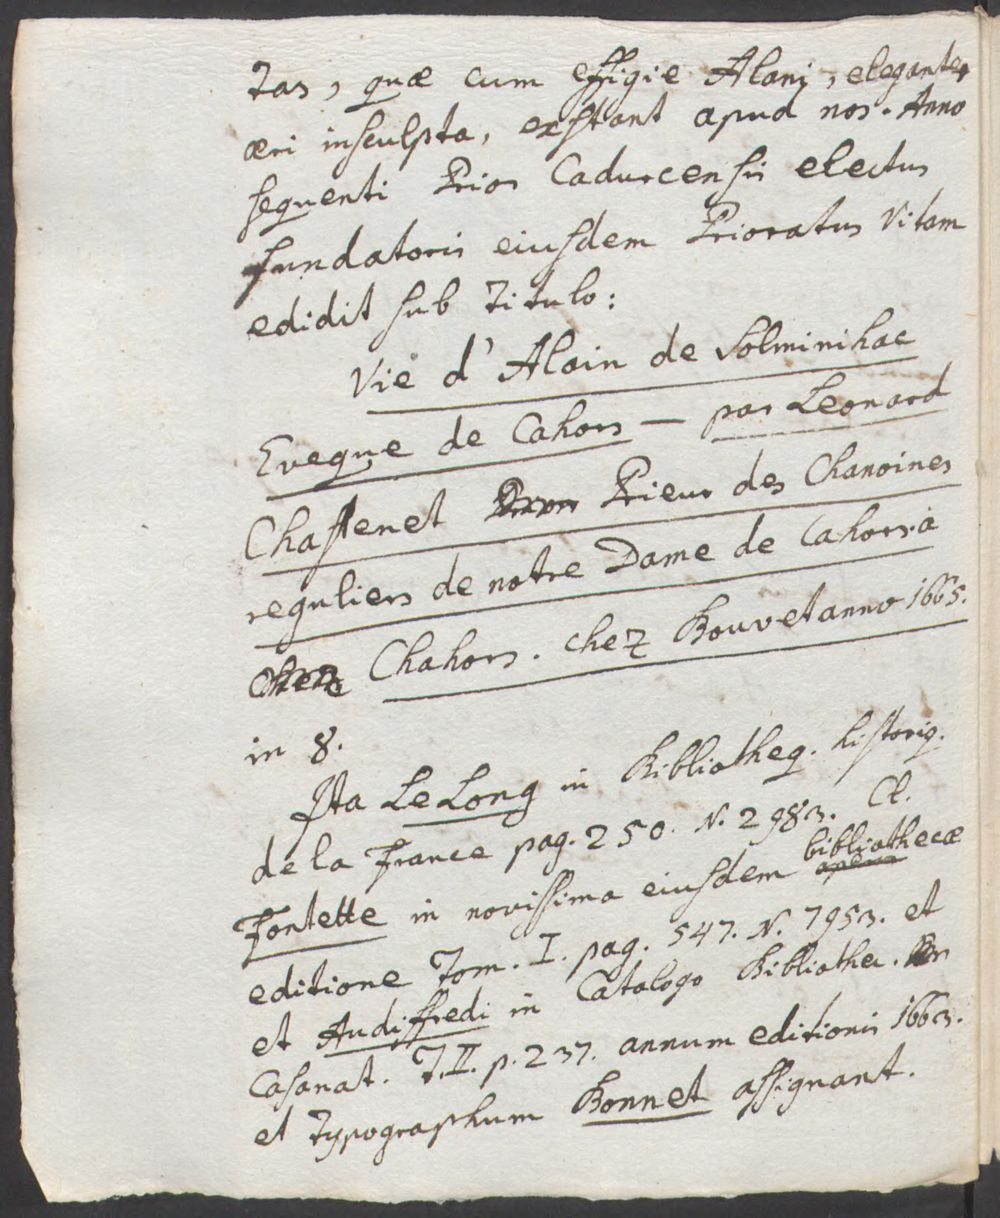 tas, quæ cum effigie Alani, eleganter
æri insculpta, exstant apud nos. Anno
sequenti Prior Cadurcensis electus
fundatoris eiusdem Prioratus Vitam
edidit sub titulo:
Vie d'Alain de Solminihac
Eveque de Cahors — par Leonard
Chastenet Prieur des Chanoines
reguliers de notre Dame de Cahors à
Chahors. chez Bouvet anno 1665.
in 8.
Ita Le Long in Bibliotheq. historiq.
de la France pag. 250. N. 2983. Cl.
Fontette in novissima eiusdem bibliothecæ
editione Tom. I. pag. 547. N. 7953. et
et Audiffredi in Catalogo Bibliothec.
Casanat. T. II. p. 237. annum editionis 1663.
et typographum Bonnet assignant.